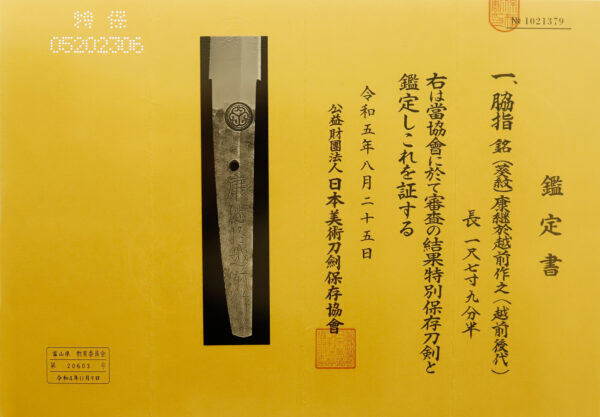 鑑定書
一、脇指 銘(葵紋)康継於越前作之(越前後代)
長一尺七寸九分半
右は當協會に於て審査の結果特別保存刀劍と
鑑定しこれを証する
令和五年八月二十五日
公益財團法人日本美術刀劍保存協會
№ 1021379
特保
05202306
富山県 教育委員会
第 20603 号